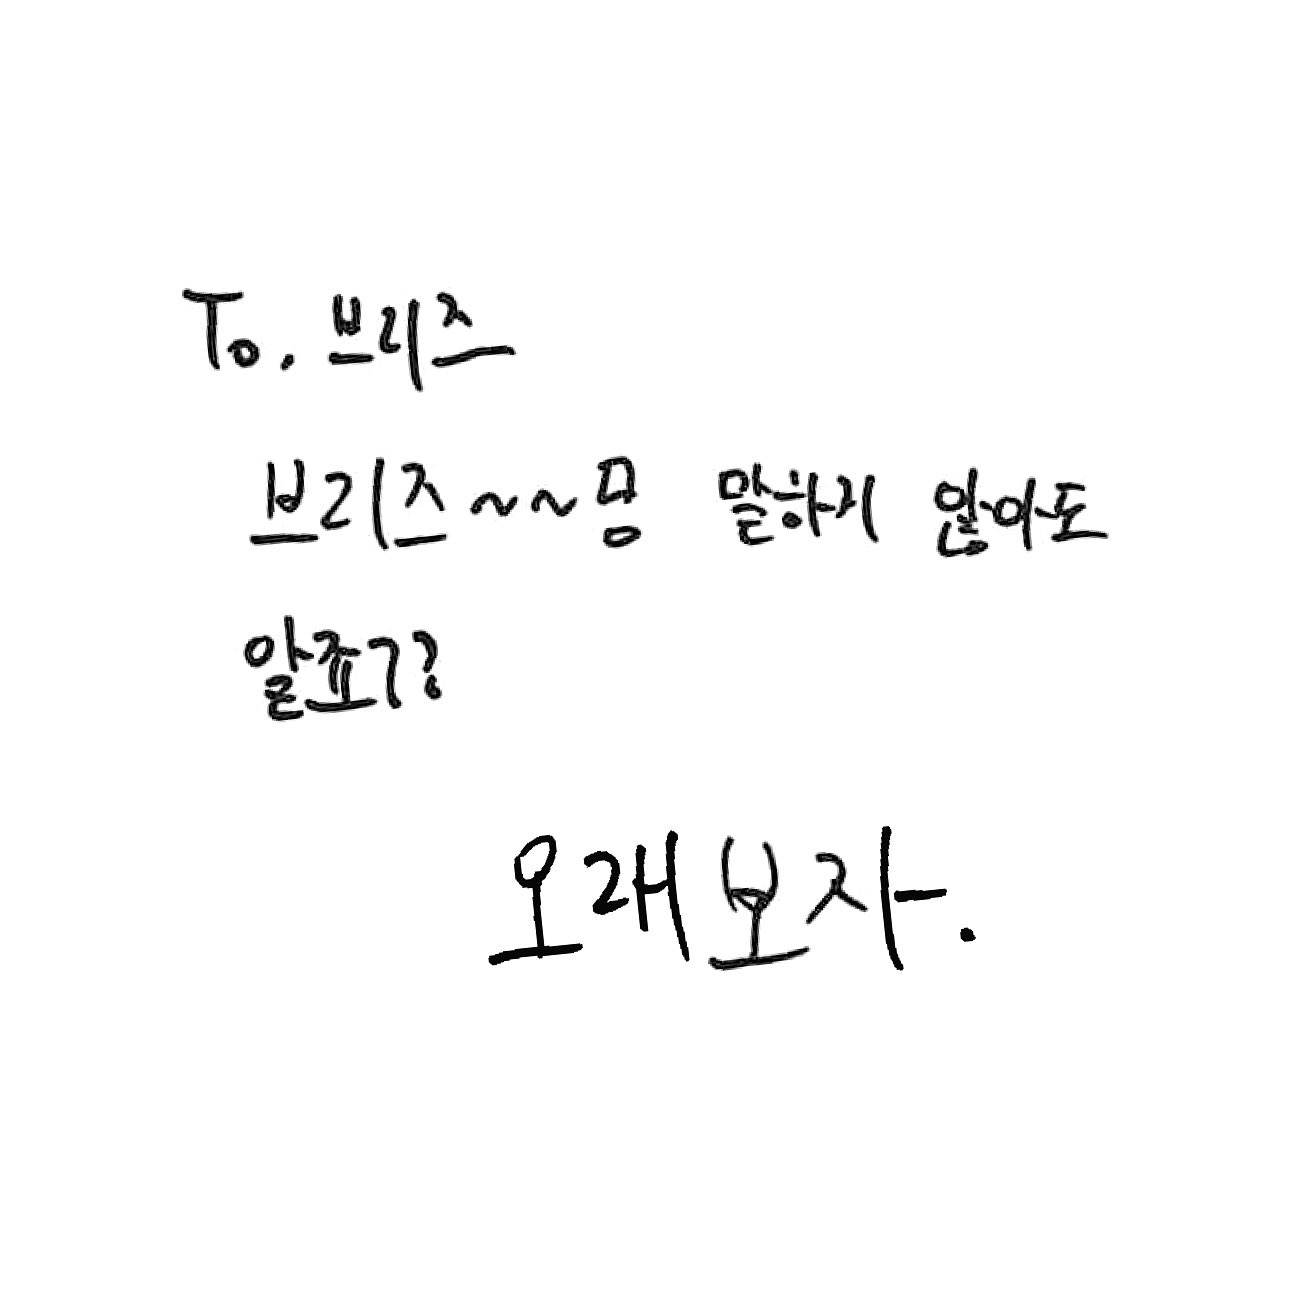 To. 브리즈
브리즈~~ㅁㅇ 말하지 않아도
알죠ㄱ?
오래보자.